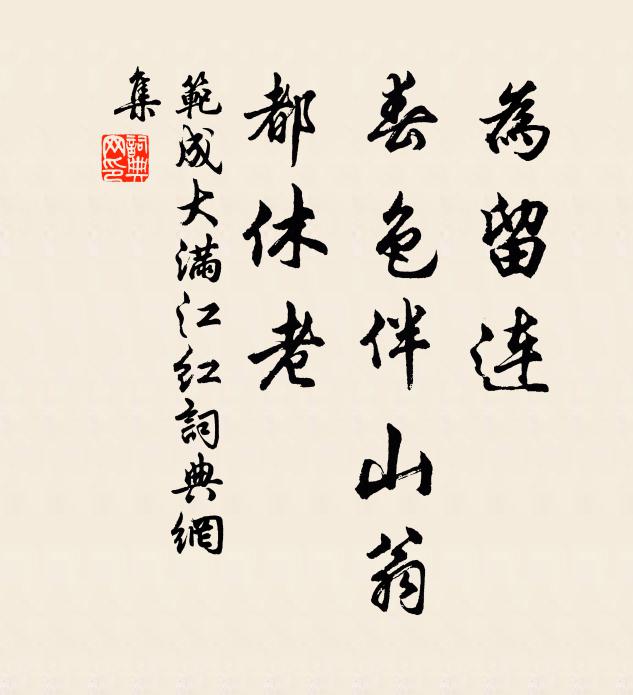 為留連
春色伴山翁
都休老
範成大滿江紅詞典網
集
詞典网印